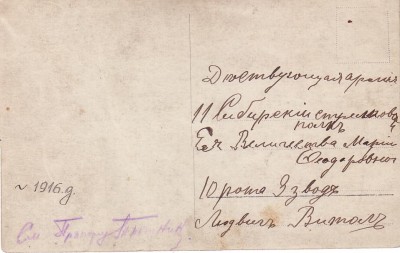 Действующая армия
11 Сибирскій стрелковый
полкъ
Ея Величества Маріи
Феодоровны
10 рота 3 взводъ
Людвигъ Витолъ
~ 1916.g.
См.